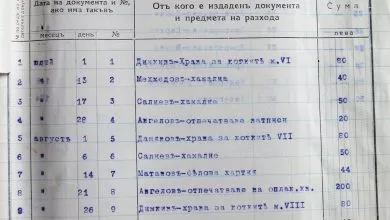 Дата на документа и №, ако има такъвъ
Отъ кого е издаденъ документа и предмета на разхода
Сума
месецъ день № лева
1 юлий 1 1 Димкивъ-Храна за котките м.VI 80
2 " 13 2 Мехмедов-хакалия 40
3 " 17 3 Салиевъ-хакалие 50
4 " 28 4 Ангеловъ-отпечатване записи 20
5 августъ 1 5 Данковъ-Храва за котките VII 80
6 " 6 6 Салиевъ-хакалие 50
7 " 14 7 Матановъ-бѣлова хартия 44
8 " 21 8 Ангеловъ-отпечатване на оплак.кн. 200
9 " 26 9 Димкивъ-Храва за котките м.VIII 80